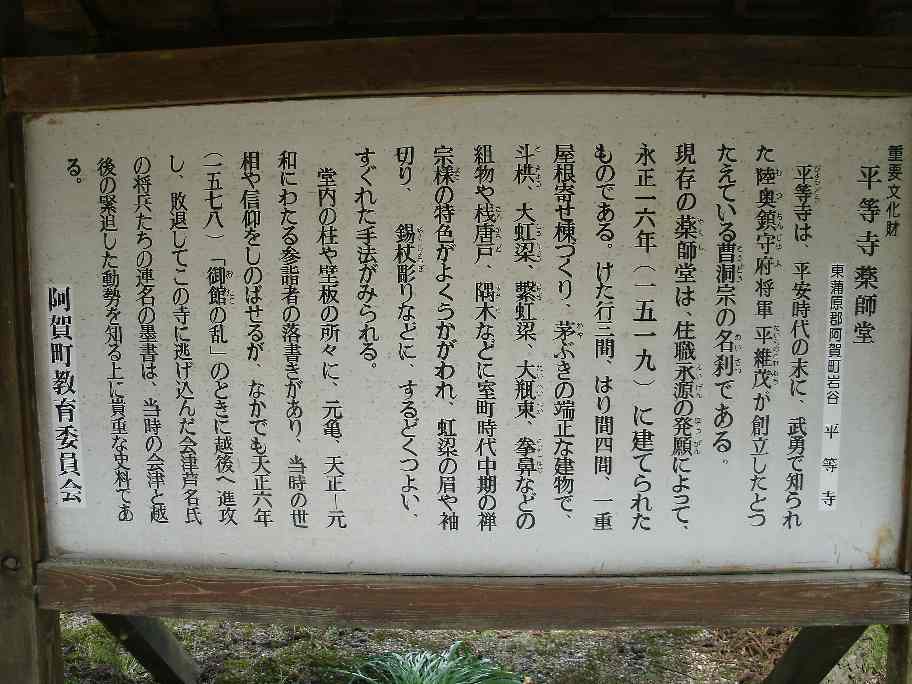 重要文化財
平等寺薬師堂
東蒲原郡阿賀町岩谷　平等寺
平等寺は、平安時代の末に、武勇で知られ
た陸奥鎮守府将軍 平維茂が創立したとつ
たえている曹洞宗の名刹である。
現存の薬師堂は、住職永源の発願によって、
永正一六年（一五一九）に建てられた
ものである。けた行三間、はり間四間、一重
屋根寄せ棟づくり、茅ぶきの端正な建物で、
斗栱、大虹梁、繋虹梁、大瓶束、拳鼻などの
組物や桟唐戸、隅木などに室町時代中期の禅
宗様の特色がよくうかがわれ、虹梁の眉や袖
切り、錫杖彫りなどに、するどくつよい、
すぐれた手法がみられる。
堂内の柱や壁板の所々に、元亀、天正ー元
和にわたる参詣者の落書きがあり、当時の世
相や信仰をしのばせるが、なかでも天正六年
（一五七八）「御館の乱」のときに越後へ進攻
し、敗退してこの寺に逃げ込んだ会津芦名氏
の将兵たちの連名の墨書は、当時の会津と越
後の緊迫した動勢を知る上に貴重な史料であ
る。
阿賀町教育委員会